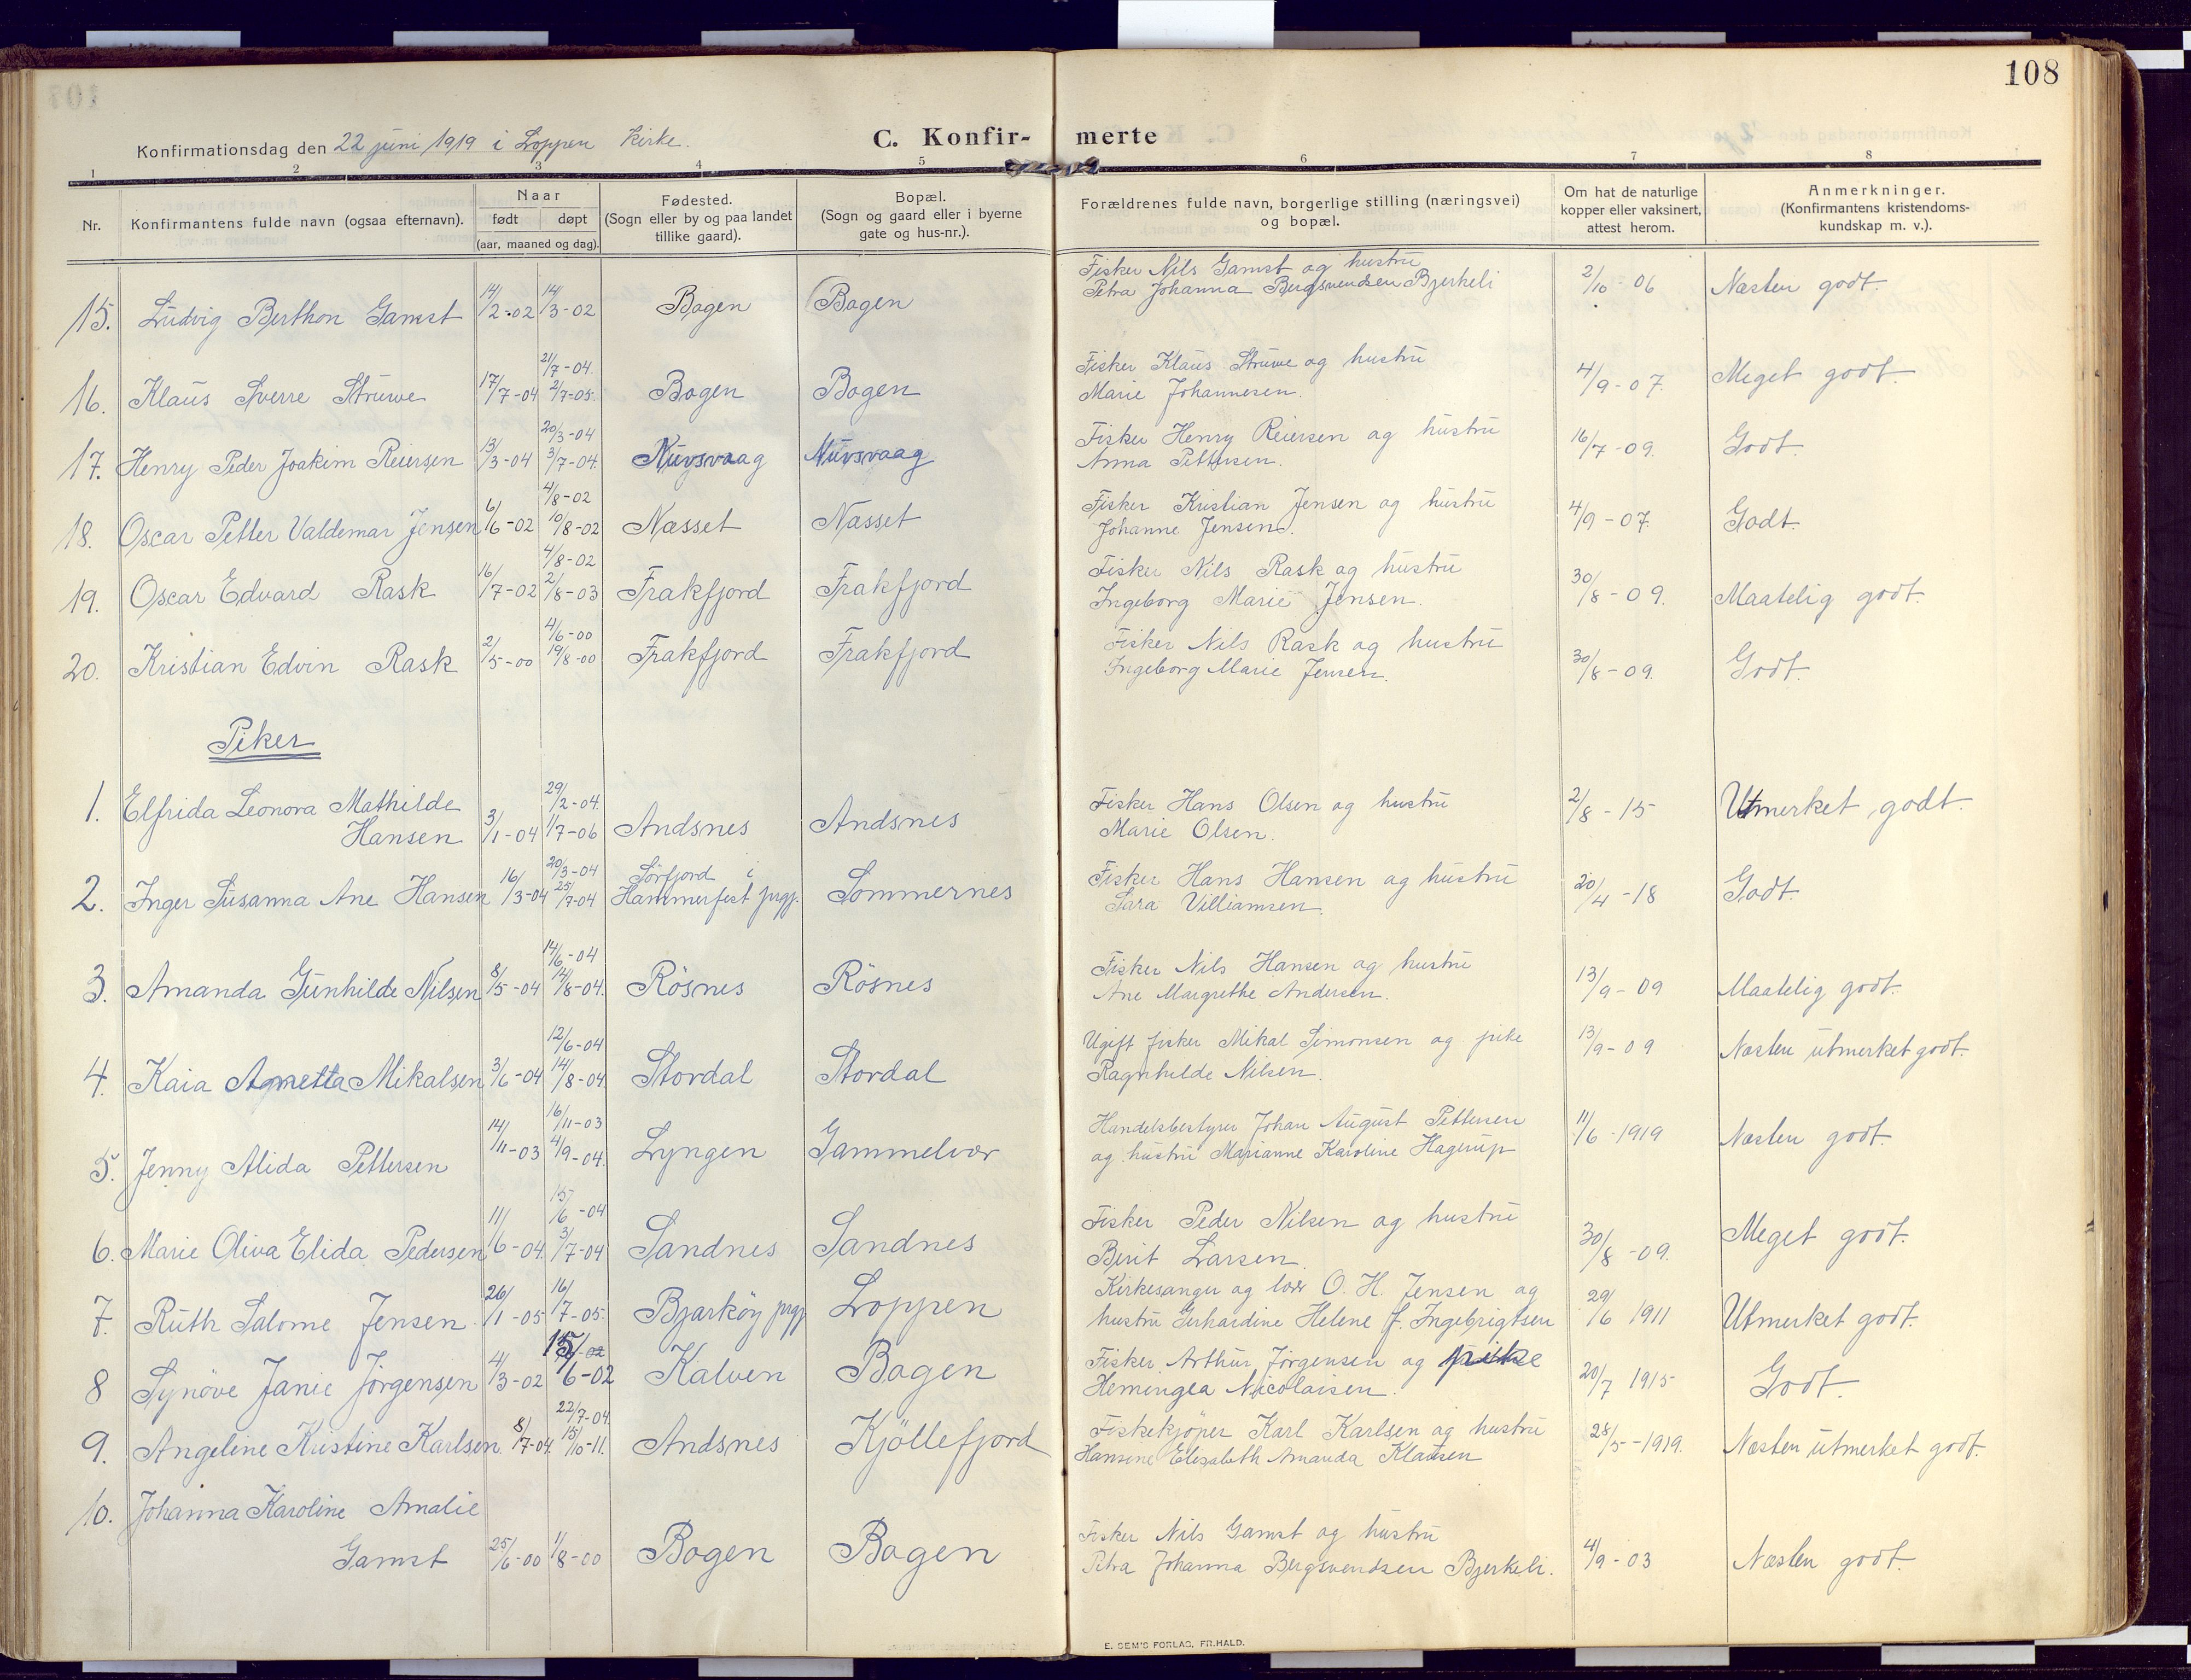 108
Konfirmationsdag den 22 juni 1919 i Loppen Kirke.
C. Konfir- merte
1 2 3 4 5 6 7 8
Nr.
Konfirmantens fulde navn (ogsaa efternavn).
Naar
født døpt
(aar, maaned og dag).
Fødested.
(Sogn eller by og paa landet
tillike gaard).
Bopæl.
(Sogn og gaard eller i byerne
gate og hus-nr.).
Forældrenes fulde navn, borgerlige stilling (næringsvei)
og bopæl.
Om hat de naturlige
kopper eller vaksinert,
attest herom.
Anmerkninger.
(Konfirmantens kristendoms-
kundskap m. v.).
15. Ludvig Berthon Gamst 14/2-02 14/3-02 Bogen Bogen
Fisker Nils Gamst og hustru
Petra Johanna Bergsvendsen Bjerkeli
2/10-06 Næsten godt.
21/7-04.
16. Klaus Sverre Struwe 17/7-04 2/7-05. Bogen Bogen
Fisker Klaus Struwe og hustru
Marie Johannesen.
4/9-07. Meget godt.
20/3-04
17. Henry Peder Joakim Reiersen 13/3-04 3/7-04. Nuvsvaag Nuvsvaag
Fisker Henry Reiersen og hustru
Anna Pettersen.
16/7-09. Godt.
4/8-02
18. Oscar Petter Valdemar Jensen 6/6-02 10/8-02 Næsset Næsset
Fisker Kristian Jensen og hustru
Johanne Jensen.
4/9-07. Godt.
4/8-02
19. Oscar Edvard Rask 16/7-02 2/8-03 Frakfjord Frakfjord
Fisker Nils Rask og hustru
Ingeborg Marie Jensen.
30/8-09. Maatelig godt.
4/6-00
20. Kristian Edvin Rask 2/5-00 19/8-00 Frakfjord Frakfjord
Fisker Nils Rask og hustru
Ingeborg Marie Jensen.
30/8-09. Godt.
Piker
1. Elfrida Leonora Mathilde 29/2-04.
Hansen 3/1-04 1/7-06 Andsnes Andsnes
Fisker Hans Olsen og hustru
Marie Olsen.
2/8-15 Utmerket godt.
20/3-04 Sörfjord i
2. Inger Susanna Ane Hansen 16/3-04 25/7-04 Hammerfest prgj. Sommernes
Fisker Hans Hansen og hustru
Sara Villiamsen.
20/4-18 Godt.
14/6-04
3. Amanda Gunhilde Nilsen 8/5-04 14/8-04. Rösnes Rösnes
Fisker Nils Hansen og hustru
Ane Margrethe Andersen.
13/9-09 Maatelig godt.
12/6-04
4. Kaia Agnetta Mikalsen 3/6-04 14/8-04. Stordal Stordal
Ugift fisker Mikal Simonsen og pike
Ragnhilde Nilsen.
13/9-09 Næsten utmerket godt.
16/11-03
5. Jenny Alida Pettersen 14/11-03 4/9-04. Lyngen Gammelvær
Handelsbestyrer Johan August Pettersen
og hustru Marianne Karoline Hagerup
11/6-1919 Næsten godt.
15/6-04
6. Marie Oliva Elida Pedersen 11/6-04. 3/7-04 Sandnes Sandnes
Fisker Peder Nilsen og hustru
Berit Larsen.
30/8-09. Meget godt.
7. Ruth Salome Jensen 26/1-05 16/7-05. Bjarköy prgj. Loppen
Kirkesanger og lær O. H. Jensen og
hustru Gerhardine Helene f. Ingebrigtsen
29/6 1911 Utmerket godt.
8 Synöve Janie Jörgensen 4/3-02 15/6-02 Kalven Bogen
Fisker Arthur Jörgensen og pike
Hemingea Nicolaisen.
20/7 1915 Godt.
22/7-04.
9. Angeline Kristine Karlsen. 8/7-04. 15/10-11. Andsnes Kjöllefjord
Fiskekjöper Karl Karlsen og hustru
Hansine Elisabeth Amanda Klausen
28/5-1919. Næsten utmerket godt.
10. Johanna Karoline Amalie
Gamst 25/6-00 1/8-00 Bogen Bogen
Fisker Nils Gamst og hustru
Petra Johanna Bergsvendsen Bjerkeli.
4/9-03 Næsten godt.
E. SEM'S FORLAG, FR.HALD.